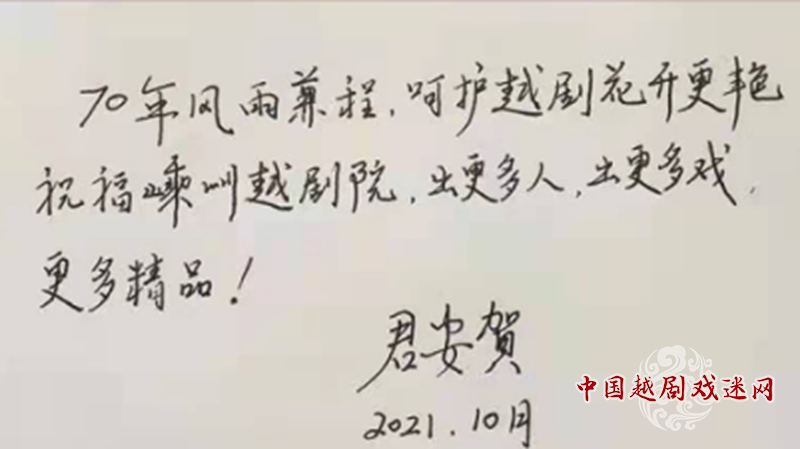 70年风雨兼程,呵护越剧花开更艳
祝福嵊州越剧院,出更多人,出更多戏,
更多精品!
君安贺
2021.10月
中国越剧戏迷网